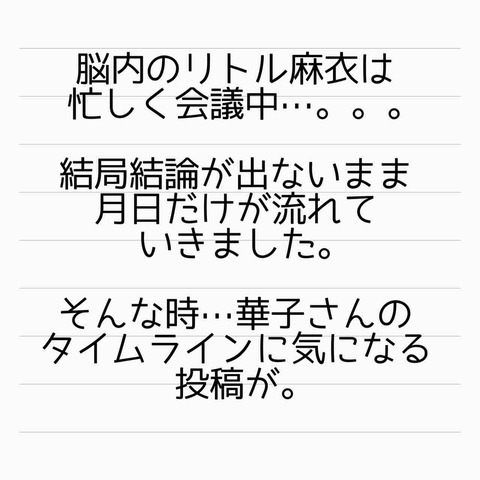 脳内のリトル麻衣は
忙しく会議中…。。。
結局結論が出ないまま
月日だけが流れて
いきました。
そんな時…華子さんの
タイムラインに気になる
投稿が。